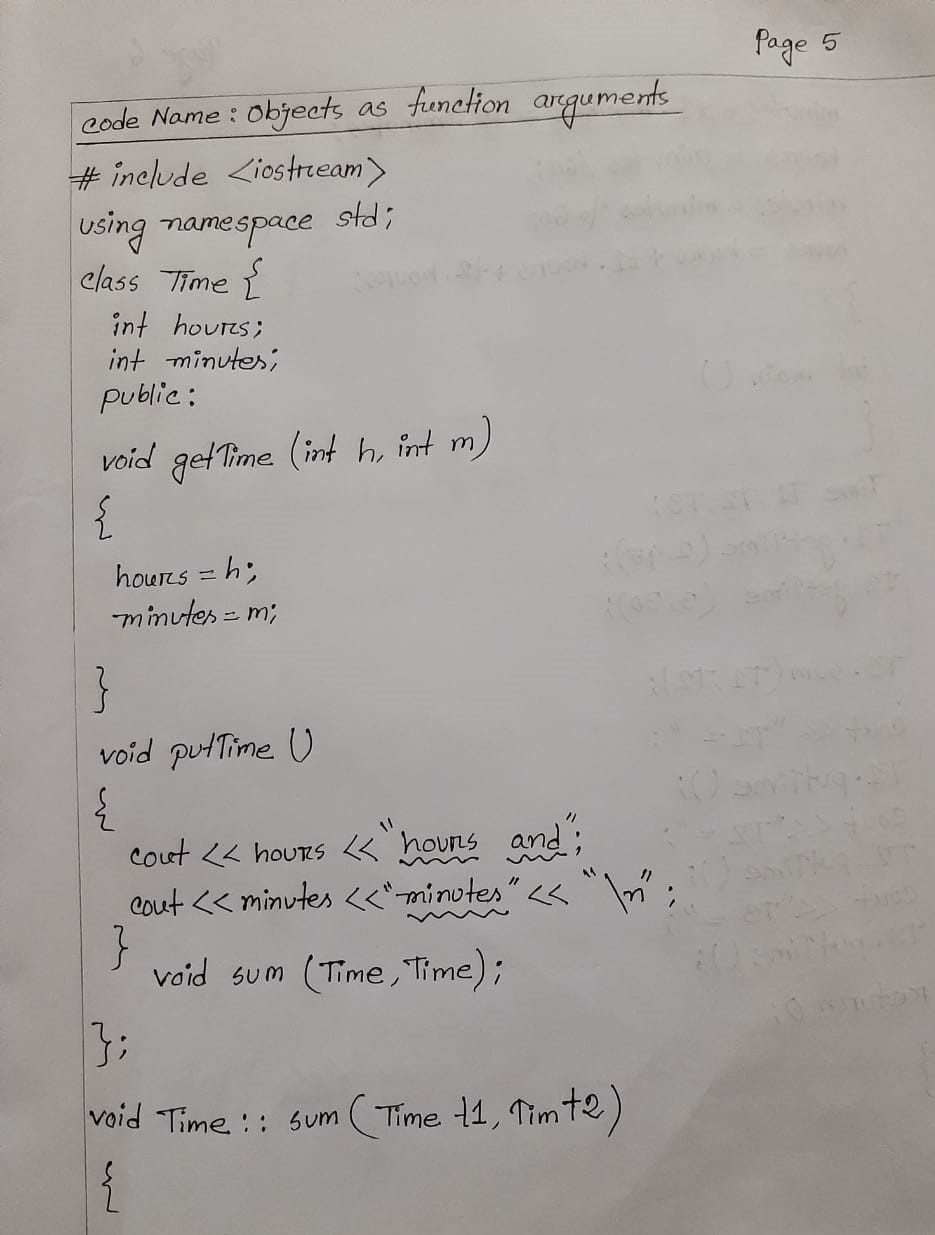 Page 5
code Name : Objects as function arguments
# include <iostream>
using namespace std;
class Time {
int hours;
int minutes;
public:
void getTime (int h, int m)
{
hours = h;
minutes = m;
}
void putTime ()
{
cout << hours << "hours and";
cout << minutes << "minutes" << "\n";
}
void sum (Time, Time);
};
void Time :: sum ( Time t1, Tim t2)
{